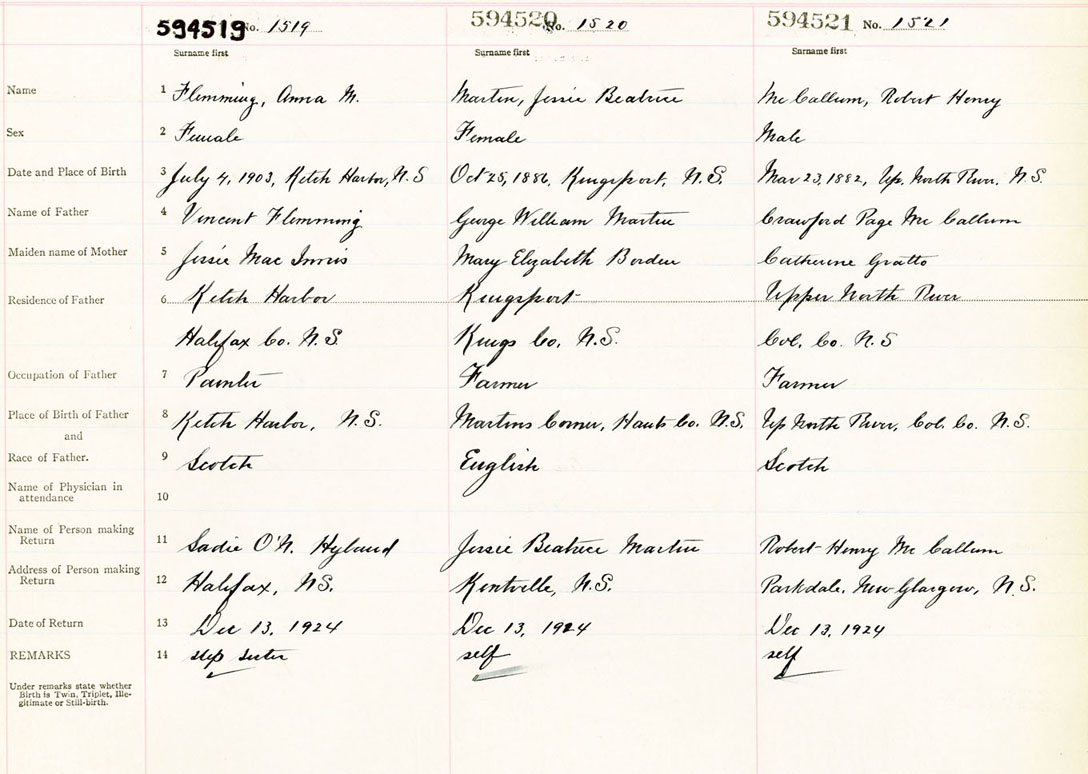 594519 No. 1519 594520 No. 1520 594521 No. 1521
Surname first Surname first Surname first
Name 1 Flemming, Anna M. Martin, Jessie Beatrice Mc Callum, Robert Henry
Sex 2 Female Female Male
Date and Place of Birth 3 July 4, 1903, Ketch Harbor, N.S Oct 25, 1886, Kingsport, N.S. Mar 23, 1882, Up. North River. N.S.
Name of Father 4 Vincent Flemming George William Martin Crawford Page Mc Callum
Maiden name of Mother 5 Jessie Mac Innis Mary Elizabeth Borden Catherine Gratto
Residence of Father 6 Ketch Harbor Kingsport Upper North River
Halifax Co. N.S Kings Co. N.S. Col. Co. N.S
Occupation of Father 7 Painter Farmer Farmer
Place of Birth of Father 8 Ketch Harbor, N.S. Martins Corner, Hants Co. N.S. Up North River, Col. Co. N.S.
and
Race of Father. 9 Scotch English Scotch
Name of Physician in
attendance 10
Name of Person making
Return 11 Sadie O'N. Hyland Jessie Beatrice Martin Robert Henry Mc Callum
Address of Person making
Return 12 Halifax, NS. Kentville, N.S. Parkdale, New Glasgow, N.S.
Date of Return 13 Dec 13, 1924 Dec 13, 1924 Dec 13, 1924
REMARKS 14 step sister self self
Under remarks state whether
Birth is Twin, Triplet, Ille-
gitimate or Still-birth.